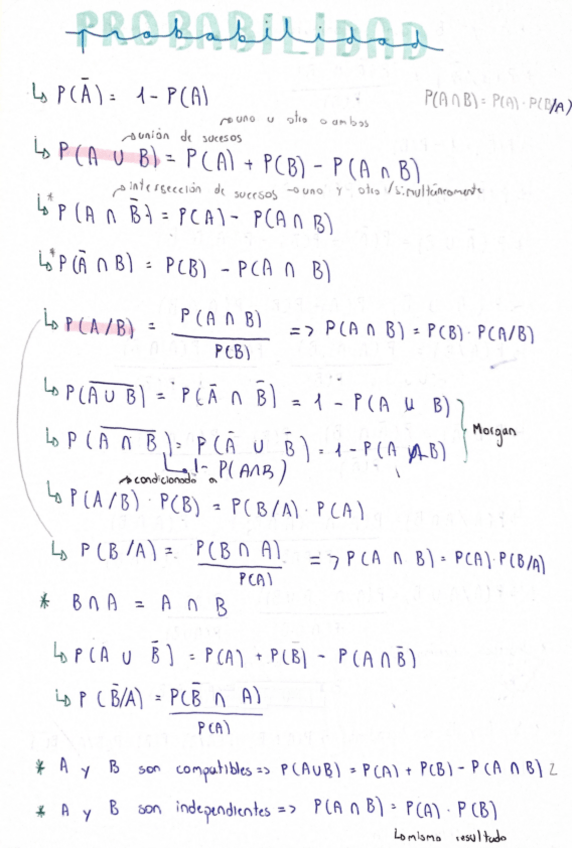 PROBABILIDAD
probabilidad
↳ P(Ā) = 1 - P(A)
P(A∩B) = P(A) · P(B/A)
uno u otro o ambos
unión de sucesos
↳ P(A ∪ B) = P(A) + P(B) - P(A ∩ B)
intersección de sucesos → uno y otro / simultáneamente
↳* P(A ∩ B̄) = P(A) - P(A ∩ B)
↳* P(Ā ∩ B) = P(B) - P(A ∩ B)
↳ P(A/B) = P(A ∩ B) / P(B) => P(A ∩ B) = P(B) · P(A/B)
↳ P(A̅ ̅∪̅ ̅B̅) = P(Ā ∩ B̄) = 1 - P(A ∪ B)
Morgan
↳ P(A̅ ̅∩̅ ̅B̅) = P(Ā ∪ B̄) = 1 - P(A ∩ B)
↳ 1 - P(A∩B)
condicionado a
↳ P(A/B) · P(B) = P(B/A) · P(A)
↳ P(B/A) = P(B ∩ A) / P(A) => P(A ∩ B) = P(A) · P(B/A)
* B ∩ A = A ∩ B
↳ P(A ∪ B̄) = P(A) + P(B̄) - P(A ∩ B̄)
↳ P(B̄/A) = P(B̄ ∩ A) / P(A)
* A y B son compatibles => P(A∪B) = P(A) + P(B) - P(A ∩ B)
* A y B son independientes => P(A ∩ B) = P(A) · P(B)
↳ mismo resultado